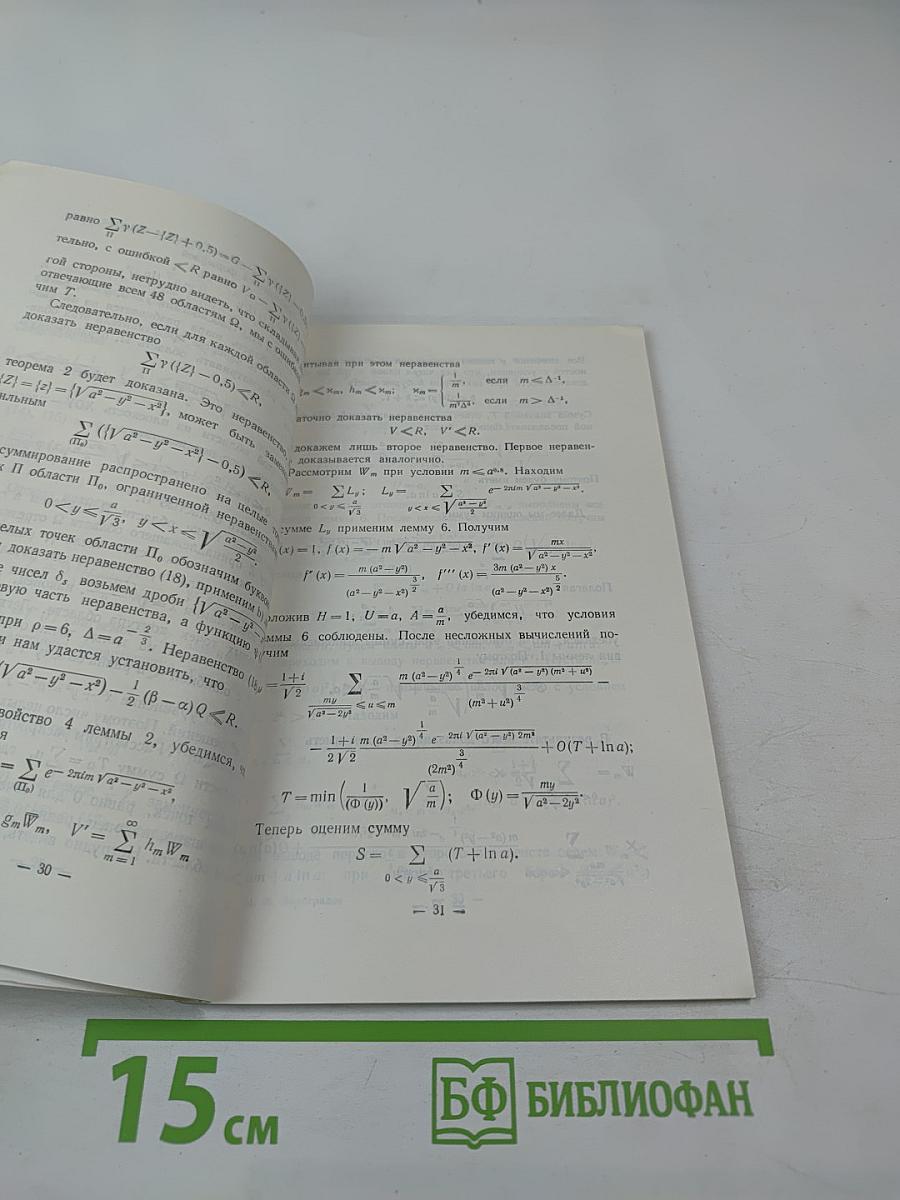 равно ∑_Π γ(Z—{Z}+0,5)=G—∑_Π γ({Z}—
тельно, с ошибкой ≪R равно V₀—∑_Π γ({Z}—
гой стороны, нетрудно видеть, что складывая
отвечающие всем 48 областям Ω, мы с ошибкой
чим T.
Следовательно, если для каждой области Ω
доказать неравенство
∑_Π γ({Z}—0,5)≪R,
теорема 2 будет доказана. Это неравенство,
{Z}={z}={√(a²—y²—x²)}, может быть
сильным
∑_(Π₀) ({√(a²—y²—x²)}—0,5)≪R,
суммирование распространено на целые
Π области Π₀, ограниченной неравенствами
0<y≤a/√3, y<x≤√((a²—y²)/2).
целых точек области Π₀ обозначим буквой
доказать неравенство (18), применим
чисел δₛ возьмем дроби {√(a²—y²—
часть неравенства, а функцию
при ρ=6, Δ=a^(—2/3). Неравенство (18)
нам удастся установить, что
√(a²—y²—x²)—1/2 (β—α)Q≪R.
свойство 4 леммы 2, убедимся,
=∑_(Π₀) e^(—2πim√(a²—y²—x²)),
gₘWₘ, V′=∑_(m=1)^∞ hₘWₘ
— 30 —
итывая при этом неравенства
gₘ≪ϰₘ, hₘ≪ϰₘ; ϰₘ={ 1/m, если m≤Δ⁻¹,
1/(m²Δ²), если m>Δ⁻¹,
аточно доказать неравенства
V≪R, V′≪R.
докажем лишь второе неравенство. Первое неравен-
доказывается аналогично.
Рассмотрим Wₘ при условии m≤a^0,8. Находим
Wₘ=∑_(0<y≤a/√3) L_y; L_y=∑_(y<x≤√((a²—y²)/2)) e^(—2πim√(a²—y²—x²)).
сумме L_y применим лемму 6. Получим
(x)=1, f(x)=—m√(a²—y²—x²), f′(x)=mx/√(a²—y²—x²),
f″(x)=m(a²—y²)/(a²—y²—x²)^(3/2), f‴(x)=3m(a²—y²)x/(a²—y²—x²)^(5/2).
оложив H=1, U=a, A=a/m, убедимся, что условия
ммы 6 соблюдены. После несложных вычислений по-
чим
=(1+i)/√2 ∑_(my/√(a²—2y²)≤u≤m) m(a²—y²)^(1/4) e^(—2πi√((a²—y²)(m²+u²)))/(m²+u²)^(3/4) —
—(1+i)/(2√2) m(a²—y²)^(1/4) e^(—2πi√((a²—y²)2m²))/(2m²)^(3/4)+O(T+ln a);
T=min(1/(Φ(y)), √(a/m)); Φ(y)=my/√(a²—2y²).
Теперь оценим сумму
S=∑_(0<y≤a/√3) (T+ln a).
— 31 —
15 см
БФ БИБЛИОФАН